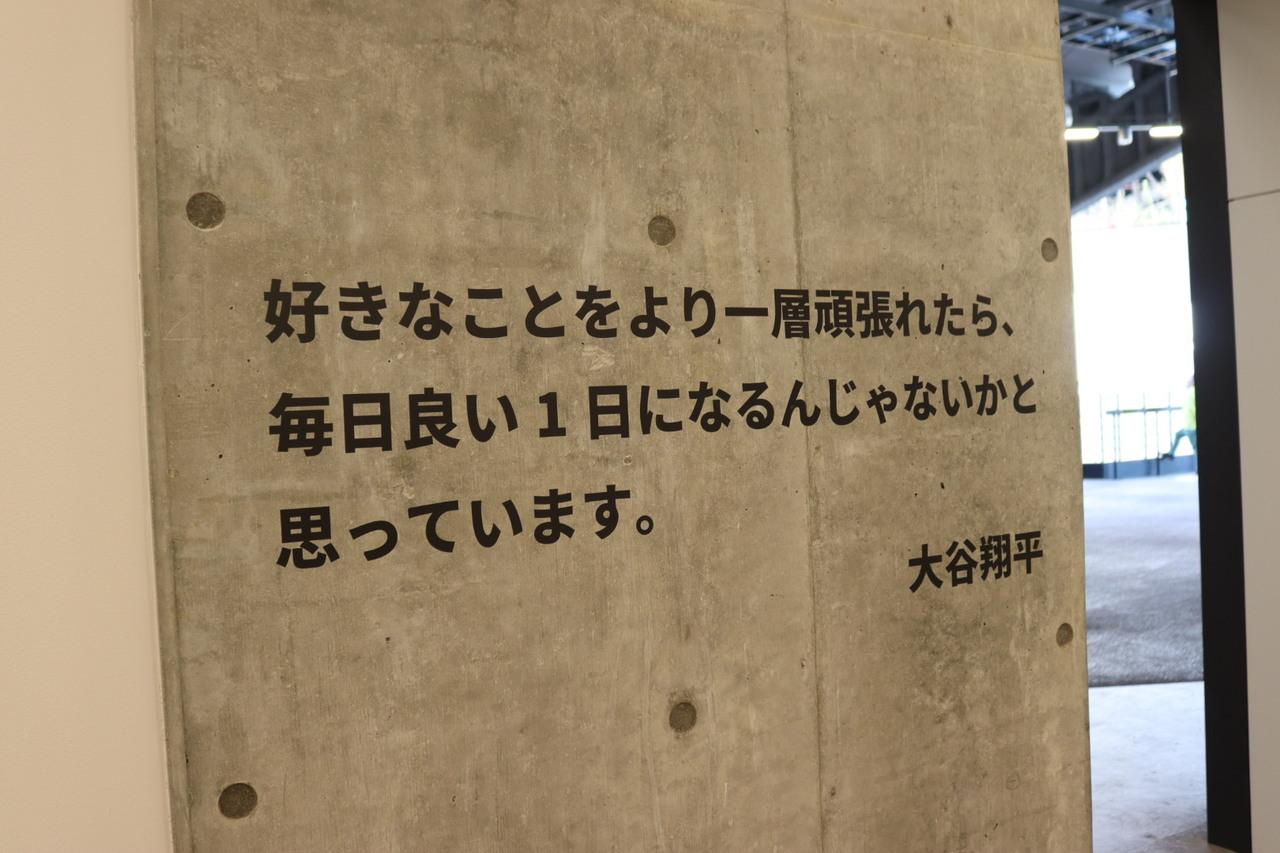 好きなことをより一層頑張れたら、
毎日良い1日になるんじゃないかと
思っています。
大谷翔平